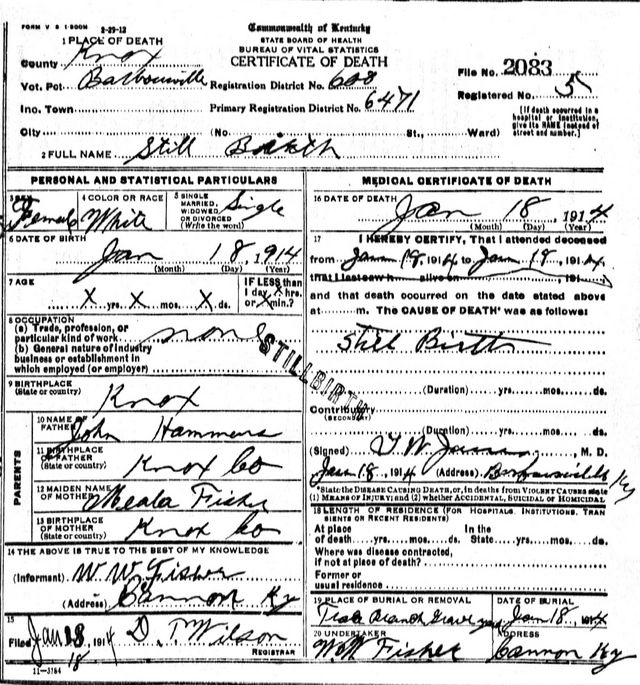 FORM V S 1-500M 2-29-12
Commonwealth of Kentucky
STATE BOARD OF HEALTH
BUREAU OF VITAL STATISTICS
CERTIFICATE OF DEATH
1 PLACE OF DEATH
County Knox
Vot. Pct Barbourville Registration District No. 608
Inc. Town Primary Registration District No. 6471
City (No St., Ward)
File No. 2083
Registered No. 5
[If death occurred in a
hospital or institution,
give its NAME instead of
street and number.]
2 FULL NAME Still Birth
PERSONAL AND STATISTICAL PARTICULARS
3 SEX Female
4 COLOR OR RACE White
5 SINGLE
MARRIED,
WIDOWED
OR DIVORCED
(Write the word)
Single
6 DATE OF BIRTH
Jan 18, 1914
(Month) (Day) (Year)
7 AGE
X yrs. X mos. X ds.
IF LESS than
1 day, X hrs.
or X min.?
8 OCCUPATION
(a) Trade, profession, or
particular kind of work none
(b) General nature of industry
business or establishment in
which employed (or employer)
STILLBIRTH
9 BIRTHPLACE
(State or country) Knox
PARENTS
10 NAME OF
FATHER John Hammons
11 BIRTHPLACE
OF FATHER
(State or country) Knox Co
12 MAIDEN NAME
OF MOTHER Fisher
13 BIRTHPLACE
OF MOTHER
(State or country) Knox Co
14 THE ABOVE IS TRUE TO THE BEST OF MY KNOWLEDGE
(Informant) W. W. Fisher
(Address) Cannon Ky
15
Filed Jan 18, 1914 D. T. Wilson
18
REGISTRAR
11-3184
MEDICAL CERTIFICATE OF DEATH
16 DATE OF DEATH
Jan 18, 1914
(Month) (Day) (Year)
17 I HEREBY CERTIFY, That I attended deceased
from Jan 18, 1914 to Jan 18, 1914
that I last saw h alive on , 191
and that death occurred on the date stated above
at m. The CAUSE OF DEATH* was as follows:
Still Birth
(Duration) yrs. mos. ds.
Contributory
(SECONDARY)
(Duration) yrs. mos. ds.
(Signed) , M. D.
Jan 18, 1914 (Address) Barbourville Ky
*State the DISEASE CAUSING DEATH, or, in deaths from VIOLENT CAUSES state
(1) MEANS OF INJURY; and (2) whether ACCIDENTAL, SUICIDAL or HOMICIDAL
18 LENGTH OF RESIDENCE (FOR HOSPITALS, INSTITUTIONS, TRAN
SIENTS OR RECENT RESIDENTS)
At place In the
of death yrs. mos. ds. State yrs. mos. ds.
Where was disease contracted,
if not at place of death?
Former or
usual residence
19 PLACE OF BURIAL OR REMOVAL DATE OF BURIAL
Branch Grave yard Jan 18, 1914
20 UNDERTAKER ADDRESS
W. W. Fisher Cannon Ky